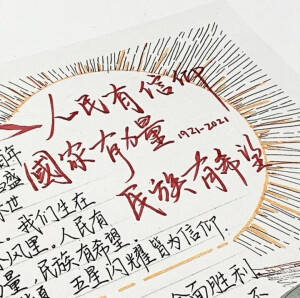 人民有信仰
國家有力量
1921-2021
民族有希望
我们生在
风里。人民有
量，民族有希望
五星闪耀皆为信仰.
面胜礼